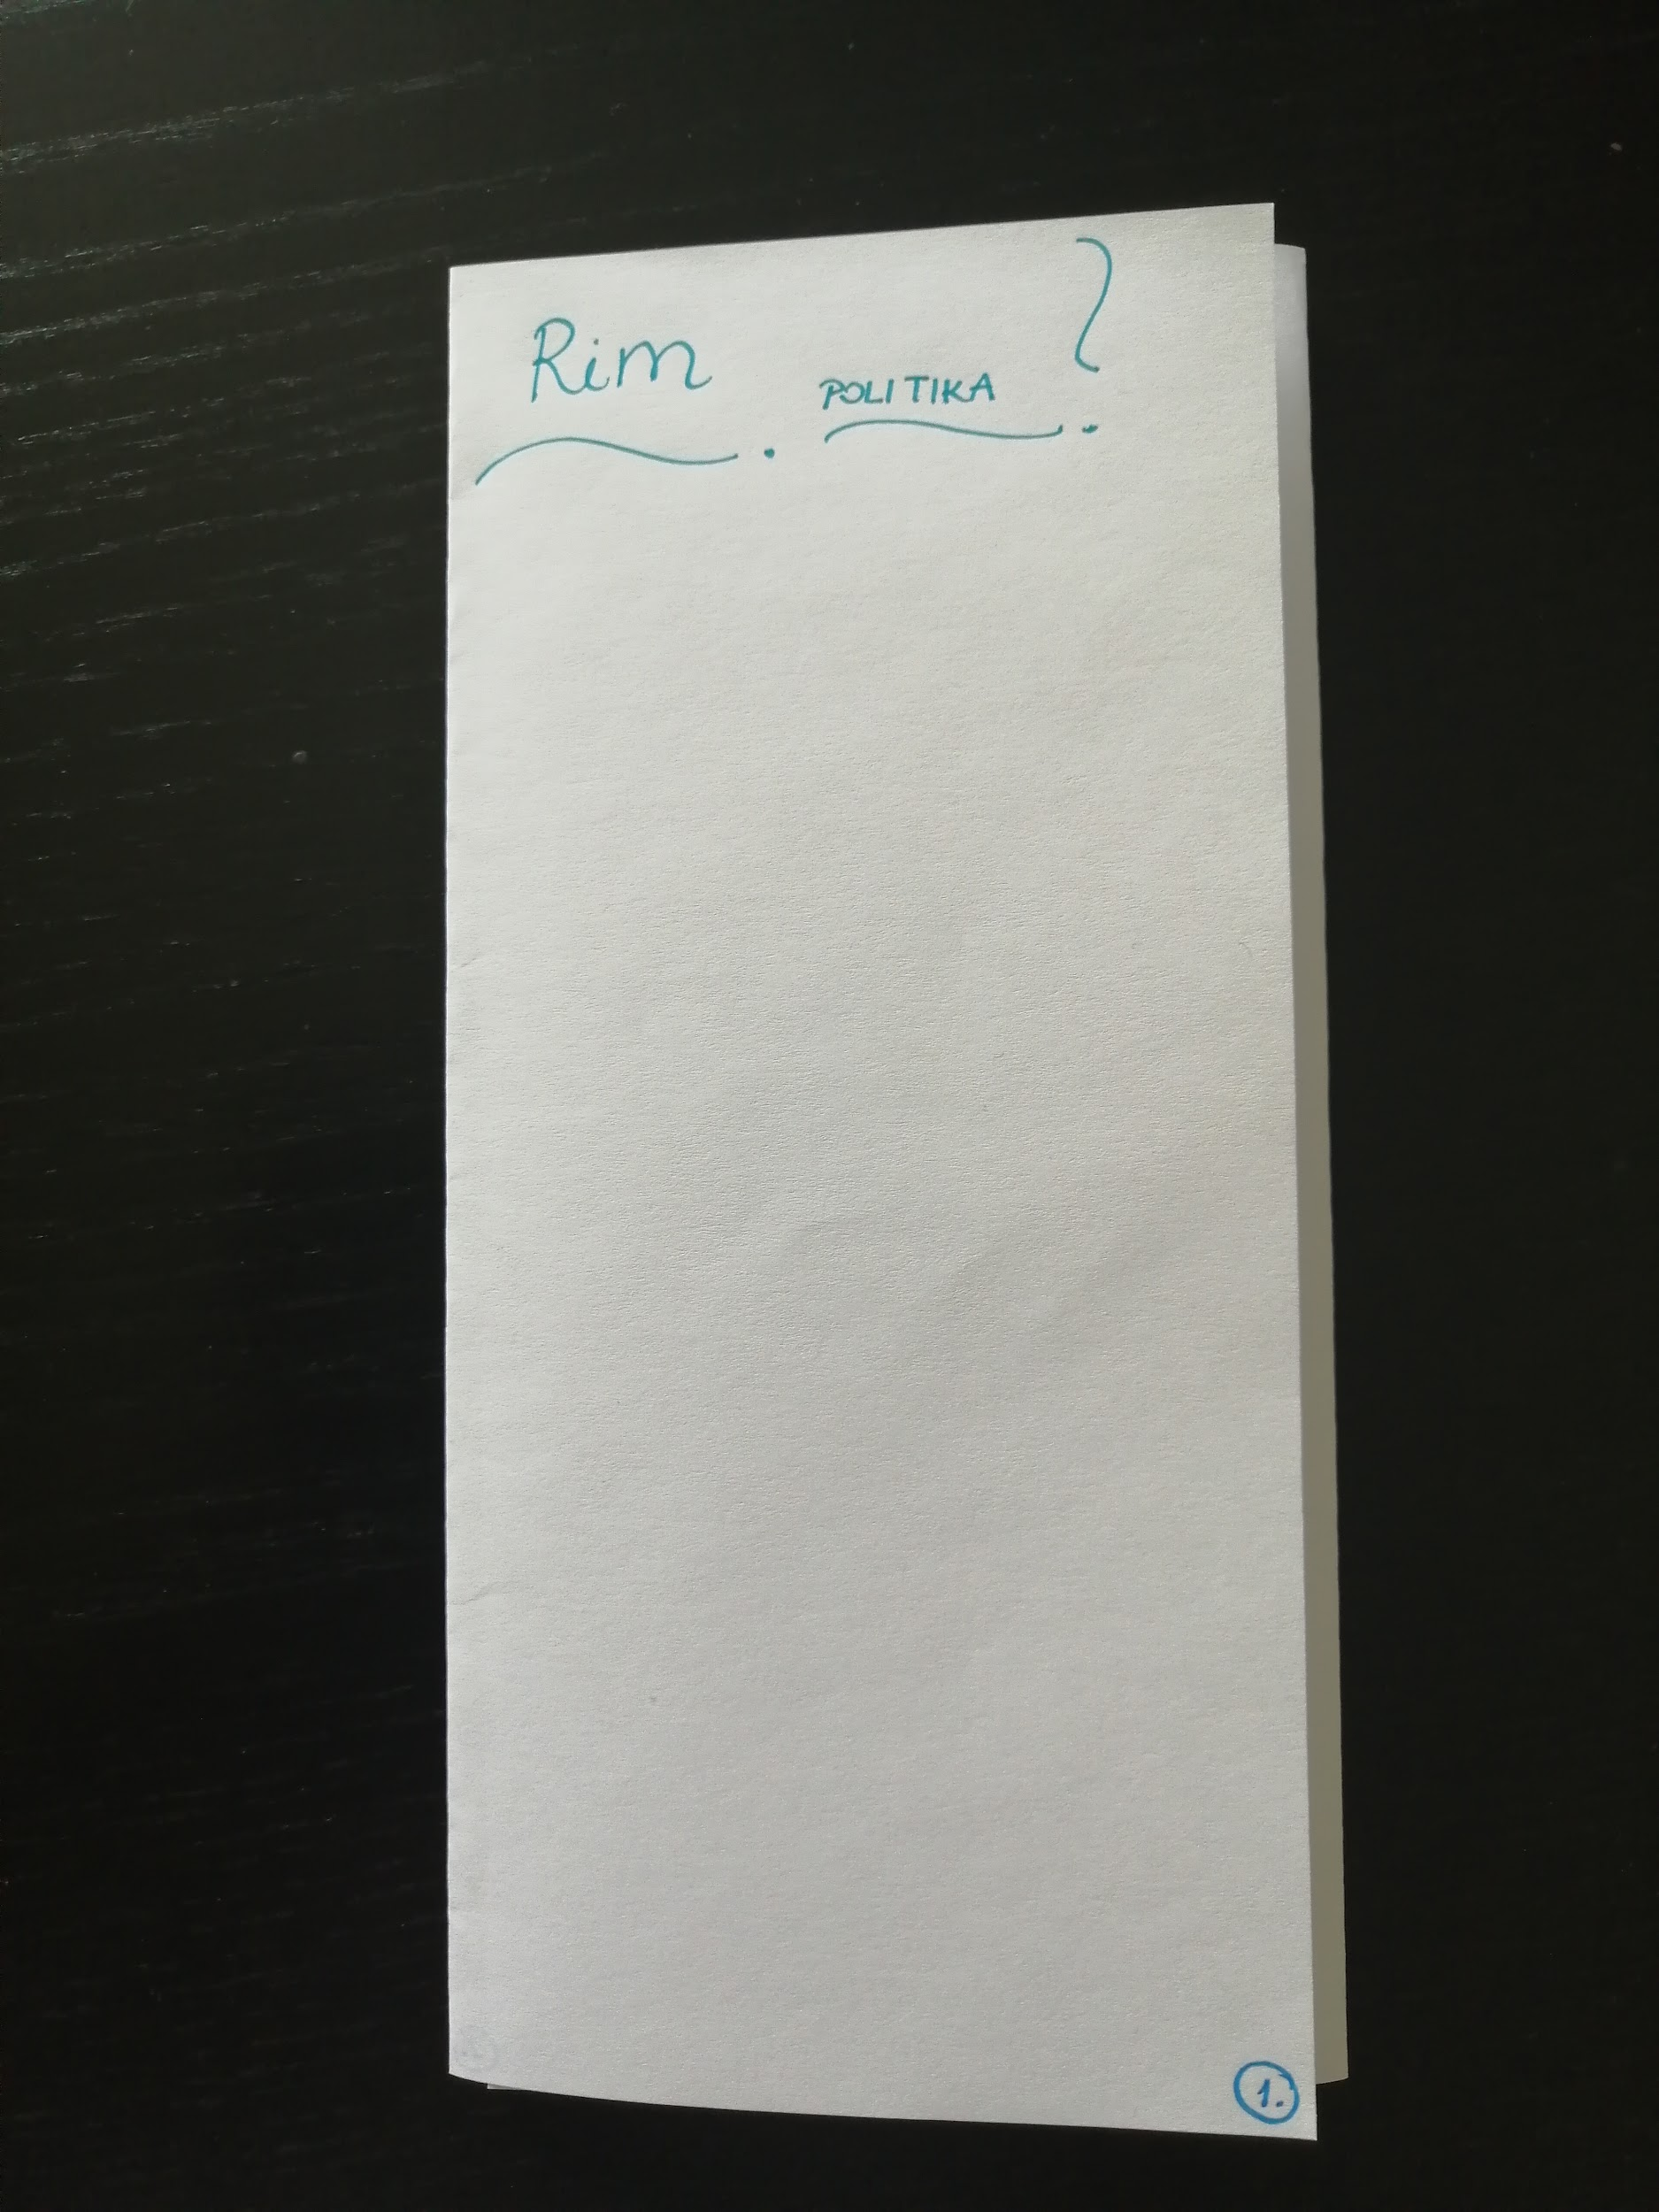 Rim
POLITIKA
1.